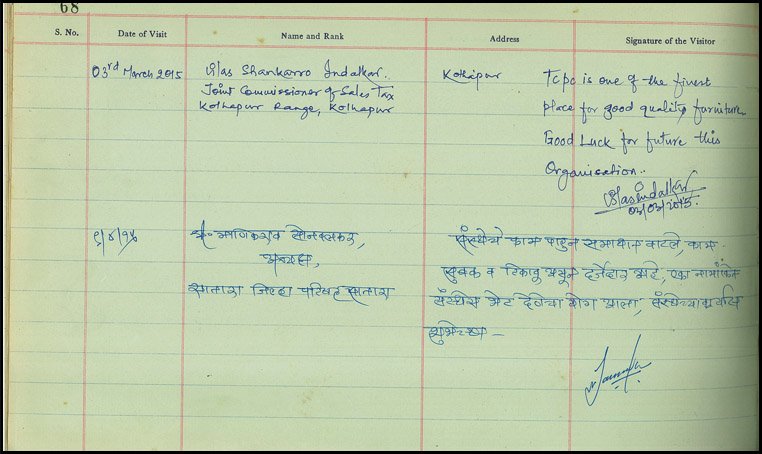 68
S. No. Date of Visit Name and Rank Address Signature of the Visitor
03rd March 2015 Vilas Shankarro Indalkar. Kolhapur Tcpc is one of the finest
Joint Commissioner of Sales Tax place for good quality furniture.
Kolhapur Range, Kolhapur Good Luck for future this
Organisation..
VlasIndalkar
03/03/2015.
९/४/१५ श्री. माणिकराव सोनवलकर, संस्थेचे काम पाहून समाधान वाटले, काम
अध्यक्ष, सुबक व टिकावू असून दर्जेदार आहे, एका नामांकित
सातारा जिल्हा परिषद सातारा संस्थेस भेट देणेचा योग आला, संस्थेच्या
शुभेच्छा —